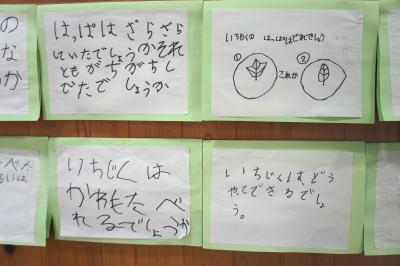 はっぱは ざらざら
していたでしょうか それ
とも がちがちし
てたでしょうか
いちじくの はっぱはどれでしょう
① ②
これか
いちじくは
かわもたべ
れるーでしょうか
いちじくは、どう
やってできるでしょ
う。
のな
か
べた